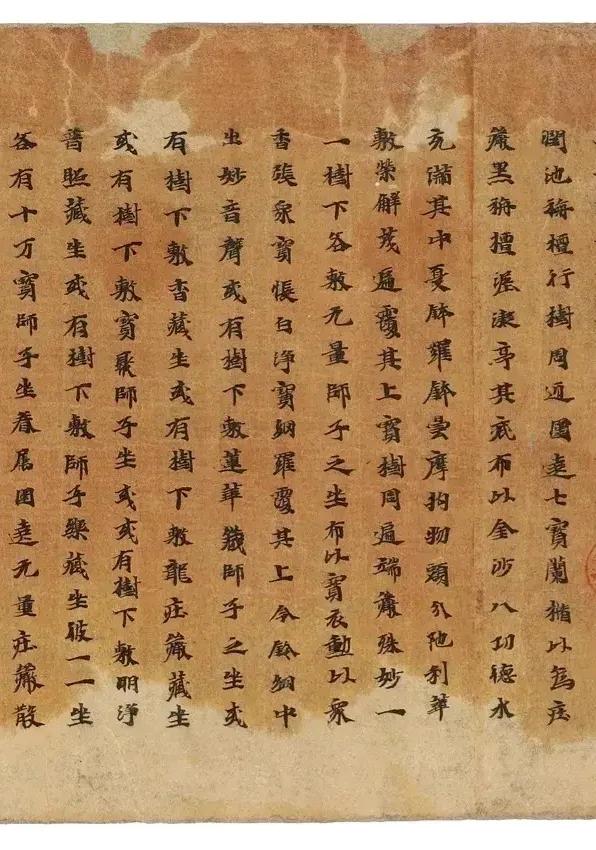 池栴檀行樹周迊圍遶七寶蘭楯以為庄
嚴黑栴檀埿凝亭其底布以金沙八功德水
充滿其中憂鉢羅鉢曇摩拘物頭分陁利華
敷榮鮮茂遍覆其上寶樹周遍端嚴殊妙一
一樹下各敷无量師子之坐布以寶衣勳以眾
香張眾寶悵白淨寶網羅覆其上金鈴網中
出妙音聲或有樹下敷蓮華藏師子之坐或
有樹下敷香藏坐或有樹下敷龍庄嚴藏坐
或有樹下敷寶聚師子坐或或有樹下敷明淨
普照藏坐或有樹下敷師子樂藏坐彼一一坐
各有十万寶師子坐眷属圍遶无量庄嚴散